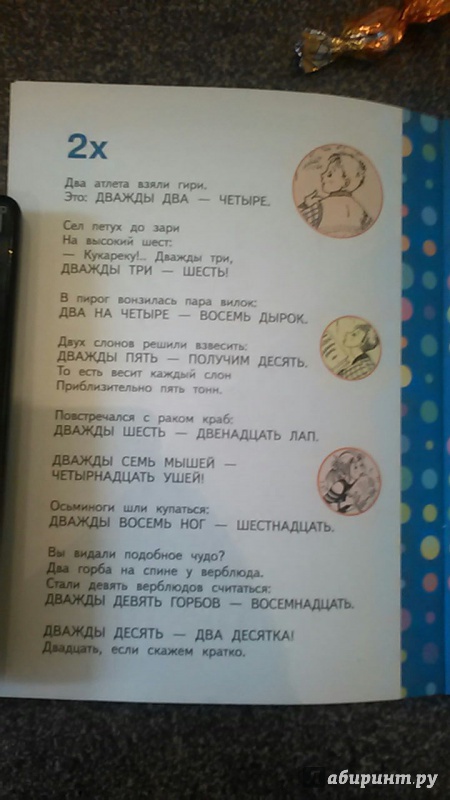 2х
Два атлета взяли гири.
Это: ДВАЖДЫ ДВА — ЧЕТЫРЕ.
Сел петух до зари
На высокий шест:
— Кукареку!.. Дважды три,
ДВАЖДЫ ТРИ — ШЕСТЬ!
В пирог вонзилась пара вилок:
ДВА НА ЧЕТЫРЕ — ВОСЕМЬ ДЫРОК.
Двух слонов решили взвесить:
ДВАЖДЫ ПЯТЬ — ПОЛУЧИМ ДЕСЯТЬ.
То есть весит каждый слон
Приблизительно пять тонн.
Повстречался с раком краб:
ДВАЖДЫ ШЕСТЬ — ДВЕНАДЦАТЬ ЛАП.
ДВАЖДЫ СЕМЬ МЫШЕЙ —
ЧЕТЫРНАДЦАТЬ УШЕЙ!
Осьминоги шли купаться:
ДВАЖДЫ ВОСЕМЬ НОГ — ШЕСТНАДЦАТЬ.
Вы видали подобное чудо?
Два горба на спине у верблюда.
Стали девять верблюдов считаться:
ДВАЖДЫ ДЕВЯТЬ ГОРБОВ — ВОСЕМНАДЦАТЬ.
ДВАЖДЫ ДЕСЯТЬ — ДВА ДЕСЯТКА!
Двадцать, если скажем кратко.
Лабиринт.ру